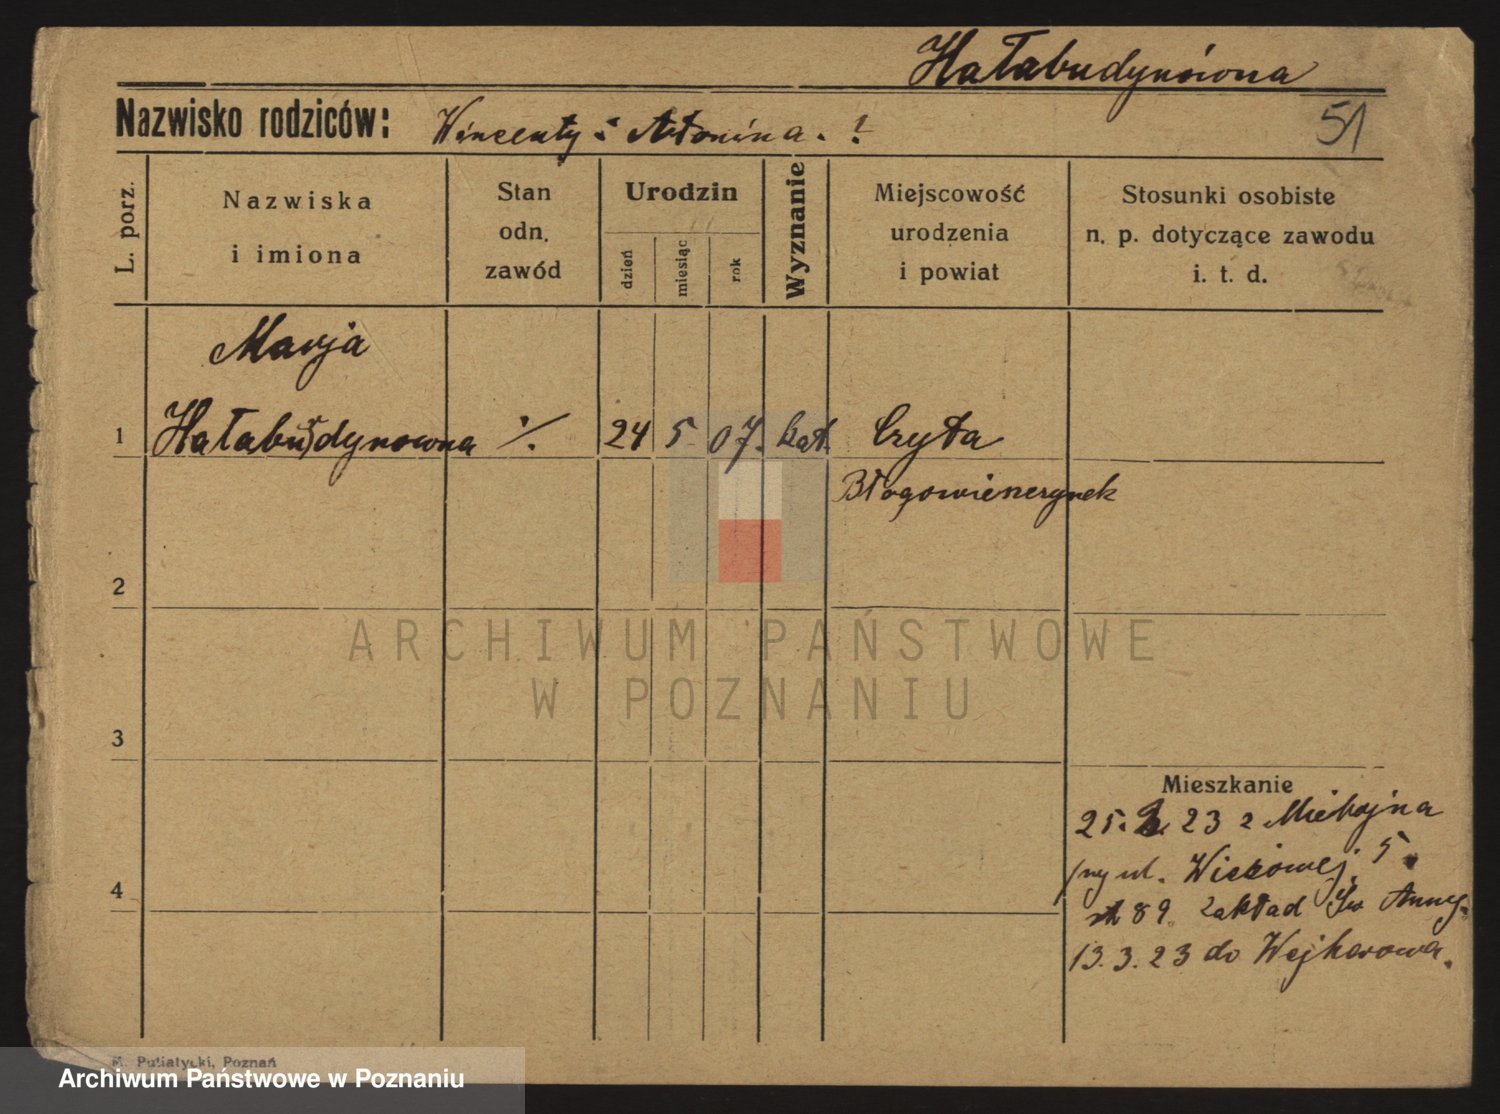 Hałabudynówna
51
Nazwisko rodziców: Wincenty i Antonina. ?
L. porz.
Nazwiska
i imiona
Stan
odn.
zawód
Urodzin
dzień
miesiąc
rok
Wyznanie
Miejscowość
urodzenia
i powiat
Stosunki osobiste
n. p. dotyczące zawodu
i. t. d.
Marja
1 Hałabudynowna ·/. 24 5. 07. kat. Czyta
Błogowieszczynek
2
3
4
Mieszkanie
25. 23 z
ul. 5.
89. Zakład Św Anny
13. 3. 23 do Wejherowa.
ARCHIWUM PAŃSTWOWE
W POZNANIU
Poznań
Archiwum Państwowe w Poznaniu